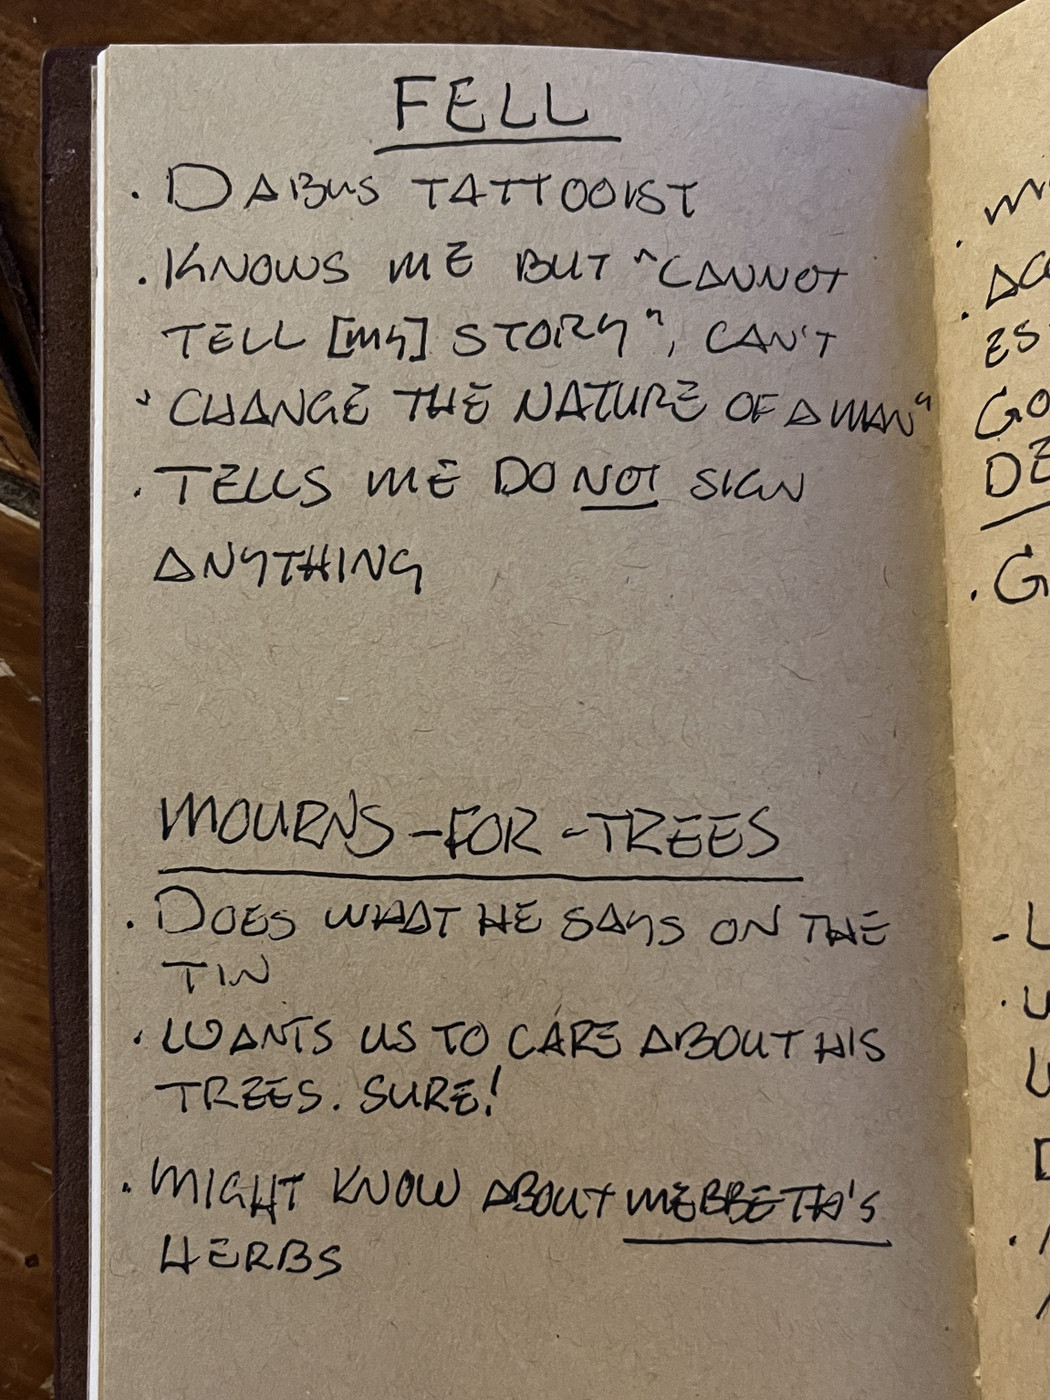 FELL
· DABUS TATTOOIST
· KNOWS ME BUT "CANNOT
TELL [MY] STORY", CAN'T
"CHANGE THE NATURE OF A MAN"
· TELLS ME DO NOT SIGN
ANYTHING
MOURNS-FOR-TREES
· DOES WHAT HE SAYS ON THE
TIN
· WANTS US TO CARE ABOUT HIS
TREES. SURE!
· MIGHT KNOW ABOUT MEBBETH'S
HERBS